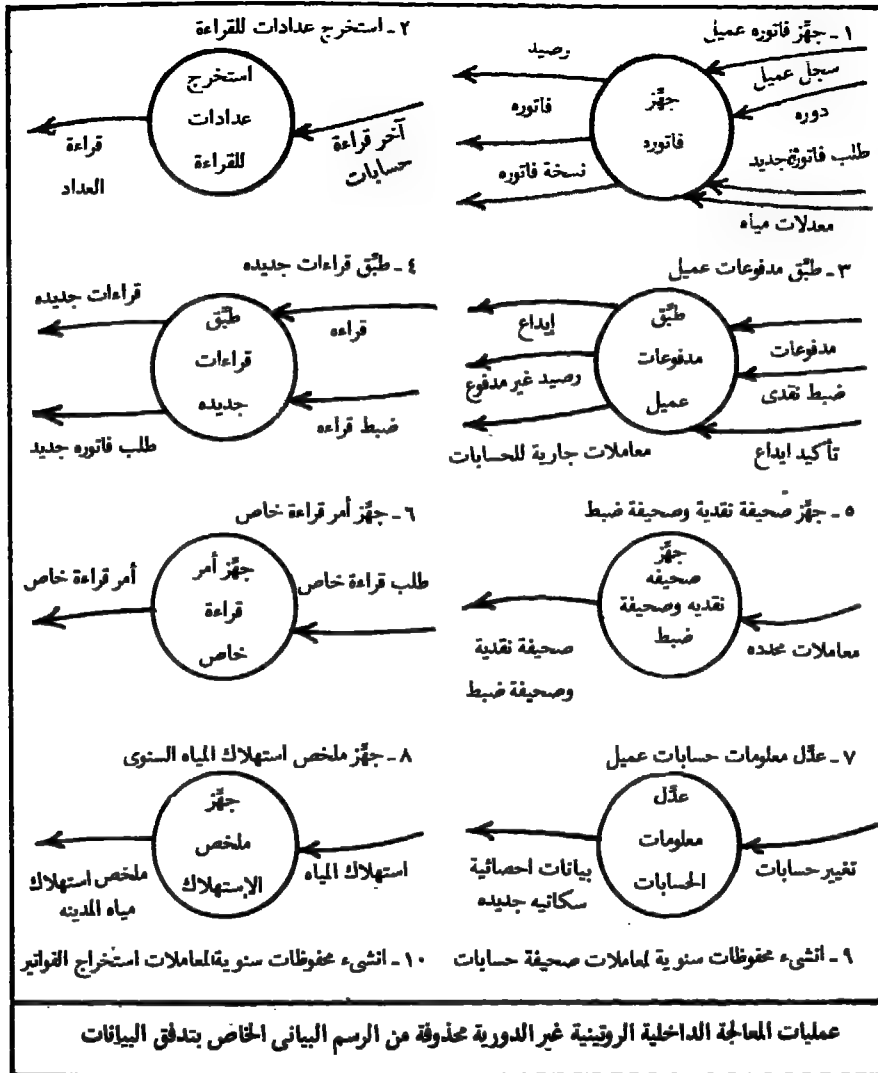 ١ - جهِّز فاتوره عميل
سجل عميل
دوره
طلب فاتورة جديد
معدلات مياه
جهِّز
فاتوره
رصيد
فاتوره
نسخة فاتوره
٢ - استخرج عدادات للقراءة
آخر قراءة
حسابات
استخرج
عدادات
للقراءة
قراءة
العداد
٣ - طبِّق مدفوعات عميل
مدفوعات
ضبط نقدى
تأكيد ايداع
طبِّق
مدفوعات
عميل
إيداع
رصيد غير مدفوع
معاملات جارية للحسابات
٤ - طبِّق قراءات جديده
قراءه
ضبط قراءه
طبِّق
قراءات
جديده
قراءات جديده
طلب فاتوره جديد
٥ - جهِّز صحيفة نقدية وصحيفة ضبط
معاملات محدده
جهِّز
صحيفه
نقديه وصحيفة
ضبط
صحيفة نقدية
وصحيفة ضبط
٦ - جهِّز أمر قراءة خاص
طلب قراءة خاص
جهِّز أمر
قراءة
خاص
أمر قراءة خاص
٧ - عدِّل معلومات حسابات عميل
تغيير حسابات
عدِّل
معلومات
الحسابات
بيانات احصائية
سكانيه جديده
٨ - جهِّز ملخص استهلاك المياه السنوى
استهلاك المياه
جهِّز
ملخص
الإستهلاك
ملخص استهلاك
مياه المدينه
٩ - انشىء محفوظات سنوية لمعاملات صحيفة حسابات
١٠ - انشىء محفوظات سنوية لمعاملات استخراج الفواتير
عمليات المعالجة الداخلية الروتينية غير الدورية محذوفة من الرسم البيانى الخاص بتدفق البيانات